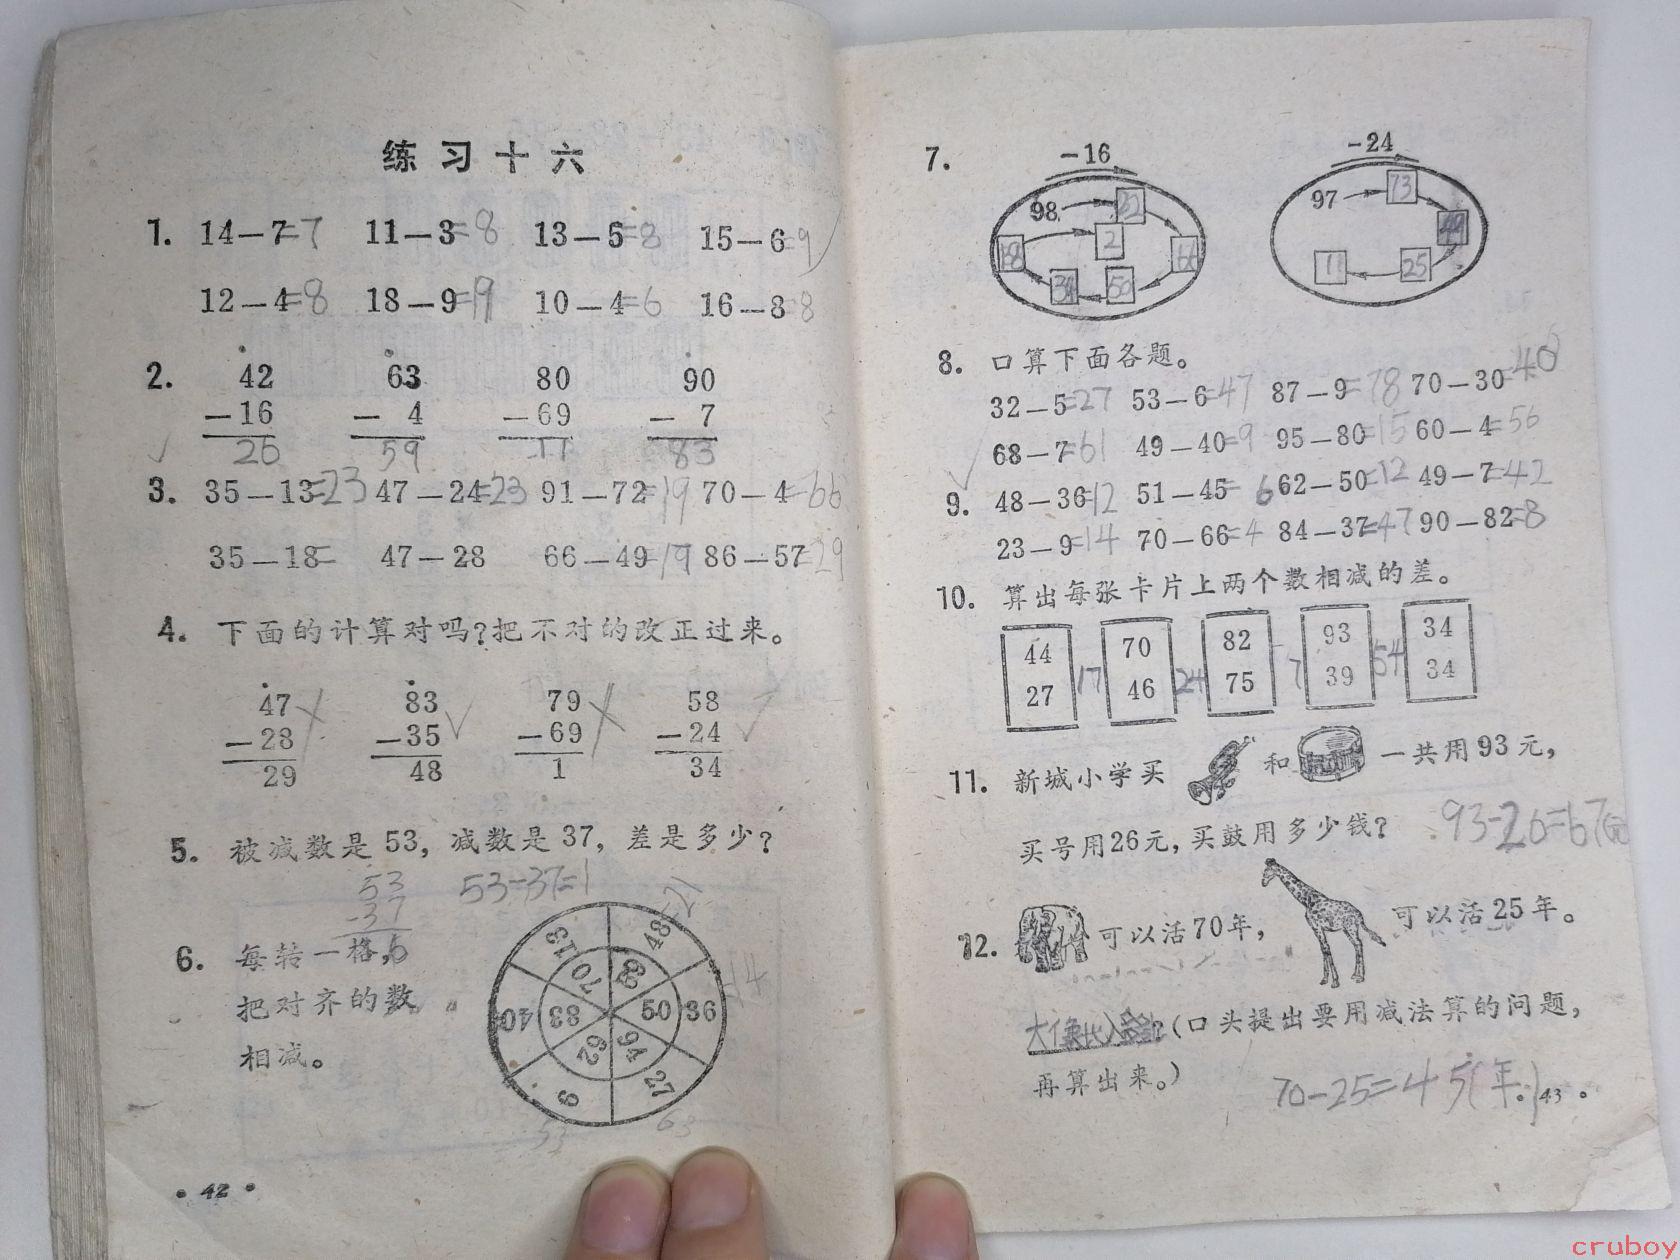 练习十六
1. 14－7=7 11－3=8 13－5=8 15－6=9
12－4=8 18－9=9 10－4=6 16－8=8
2. 42 63 80 90
－16 － 4 －69 － 7
26 59 11 83
3. 35－13=23 47－24=23 91－72=19 70－4=66
35－18= 47－28 66－49=19 86－57=29
4. 下面的计算对吗?把不对的改正过来。
47 83 79 58
－28 －35 －69 －24
29 48 1 34
5. 被减数是 53, 减数是 37, 差是多少?
53 53-37=1
-37
6. 每转一格,
把对齐的数
相减。
113 48
70 89
40 83 50 36
62 94
9 27
53 63
• 42 •
7. －16 －24
98 97 73
2 49
66 25
34 50 11
8. 口算下面各题。
32－5=27 53－6=47 87－9=78 70－30=40
68－7=61 49－40=9 95－80=15 60－4=56
9. 48－36=12 51－45=6 62－50=12 49－7=42
23－9=14 70－66=4 84－37=47 90－82=8
10. 算出每张卡片上两个数相减的差。
44 70 82 93 34
27 17 46 24 75 7 39 54 34
11. 新城小学买 和 一共用 93 元,
买号用26元, 买鼓用多少钱? 93-26=67(元)
12. 可以活 70 年, 可以活 25 年。
(口头提出要用减法算的问题,
再算出来。)
70-25=45(年)
• 43 •
cruboy